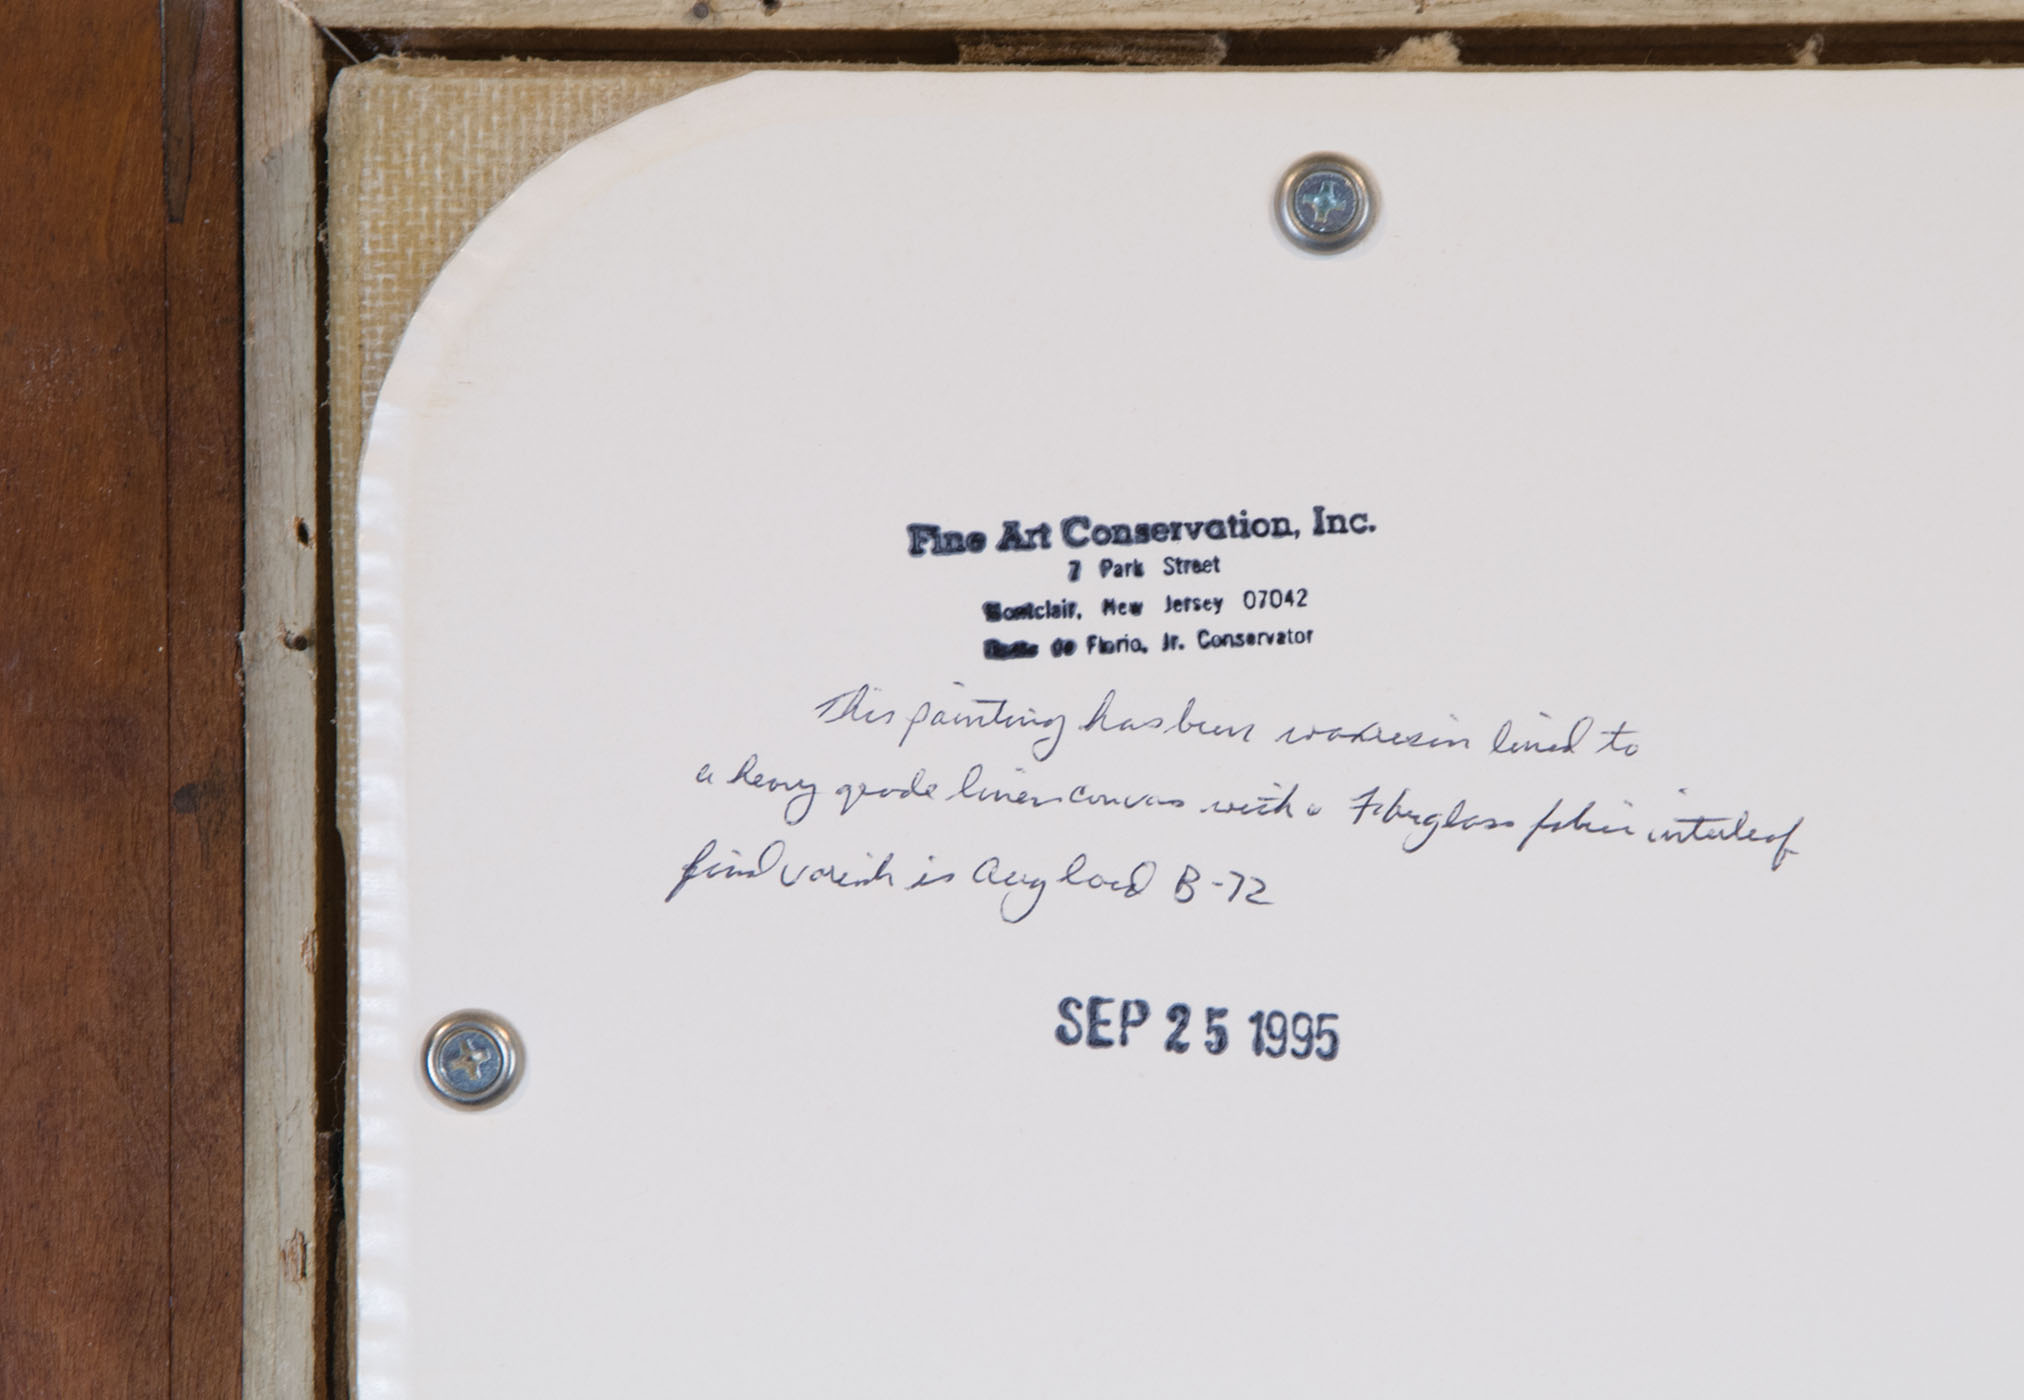 Fine Art Conservation, Inc.
7 Park Street
Montclair, New Jersey 07042
de Florio, Jr. Conservator
This painting has been waxresin lined to
a heavy grade linen canvas with a Fiberglass fabric interleaf
final varnish is B-72
SEP 25 1995